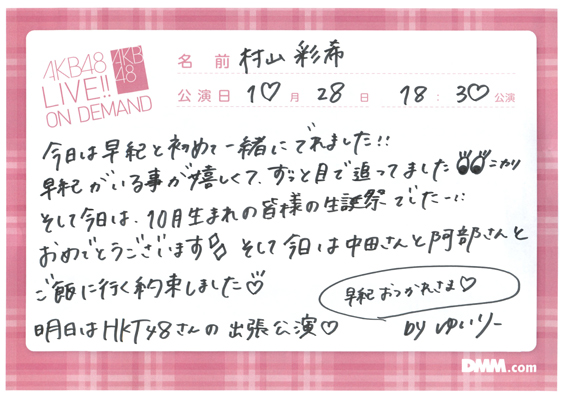 AKB48
LIVE!!
ON DEMAND
AKB
48
名 前 村山 彩希
公演日 10月 28日 18:30公演
今日は早紀と初めて一緒にでれました!!
早紀がいる事が嬉しくて、ずっと目で追ってました ニカリ
そして今日は、10月生まれの皆様の生誕祭でしたー
おめでとうございます そして今日は中田さんと阿部さんと
ご飯に行く約束しました♡
早紀おつかれさま♡
明日はHKT48さんの出張公演♡
by ゆいりー
DMM.com